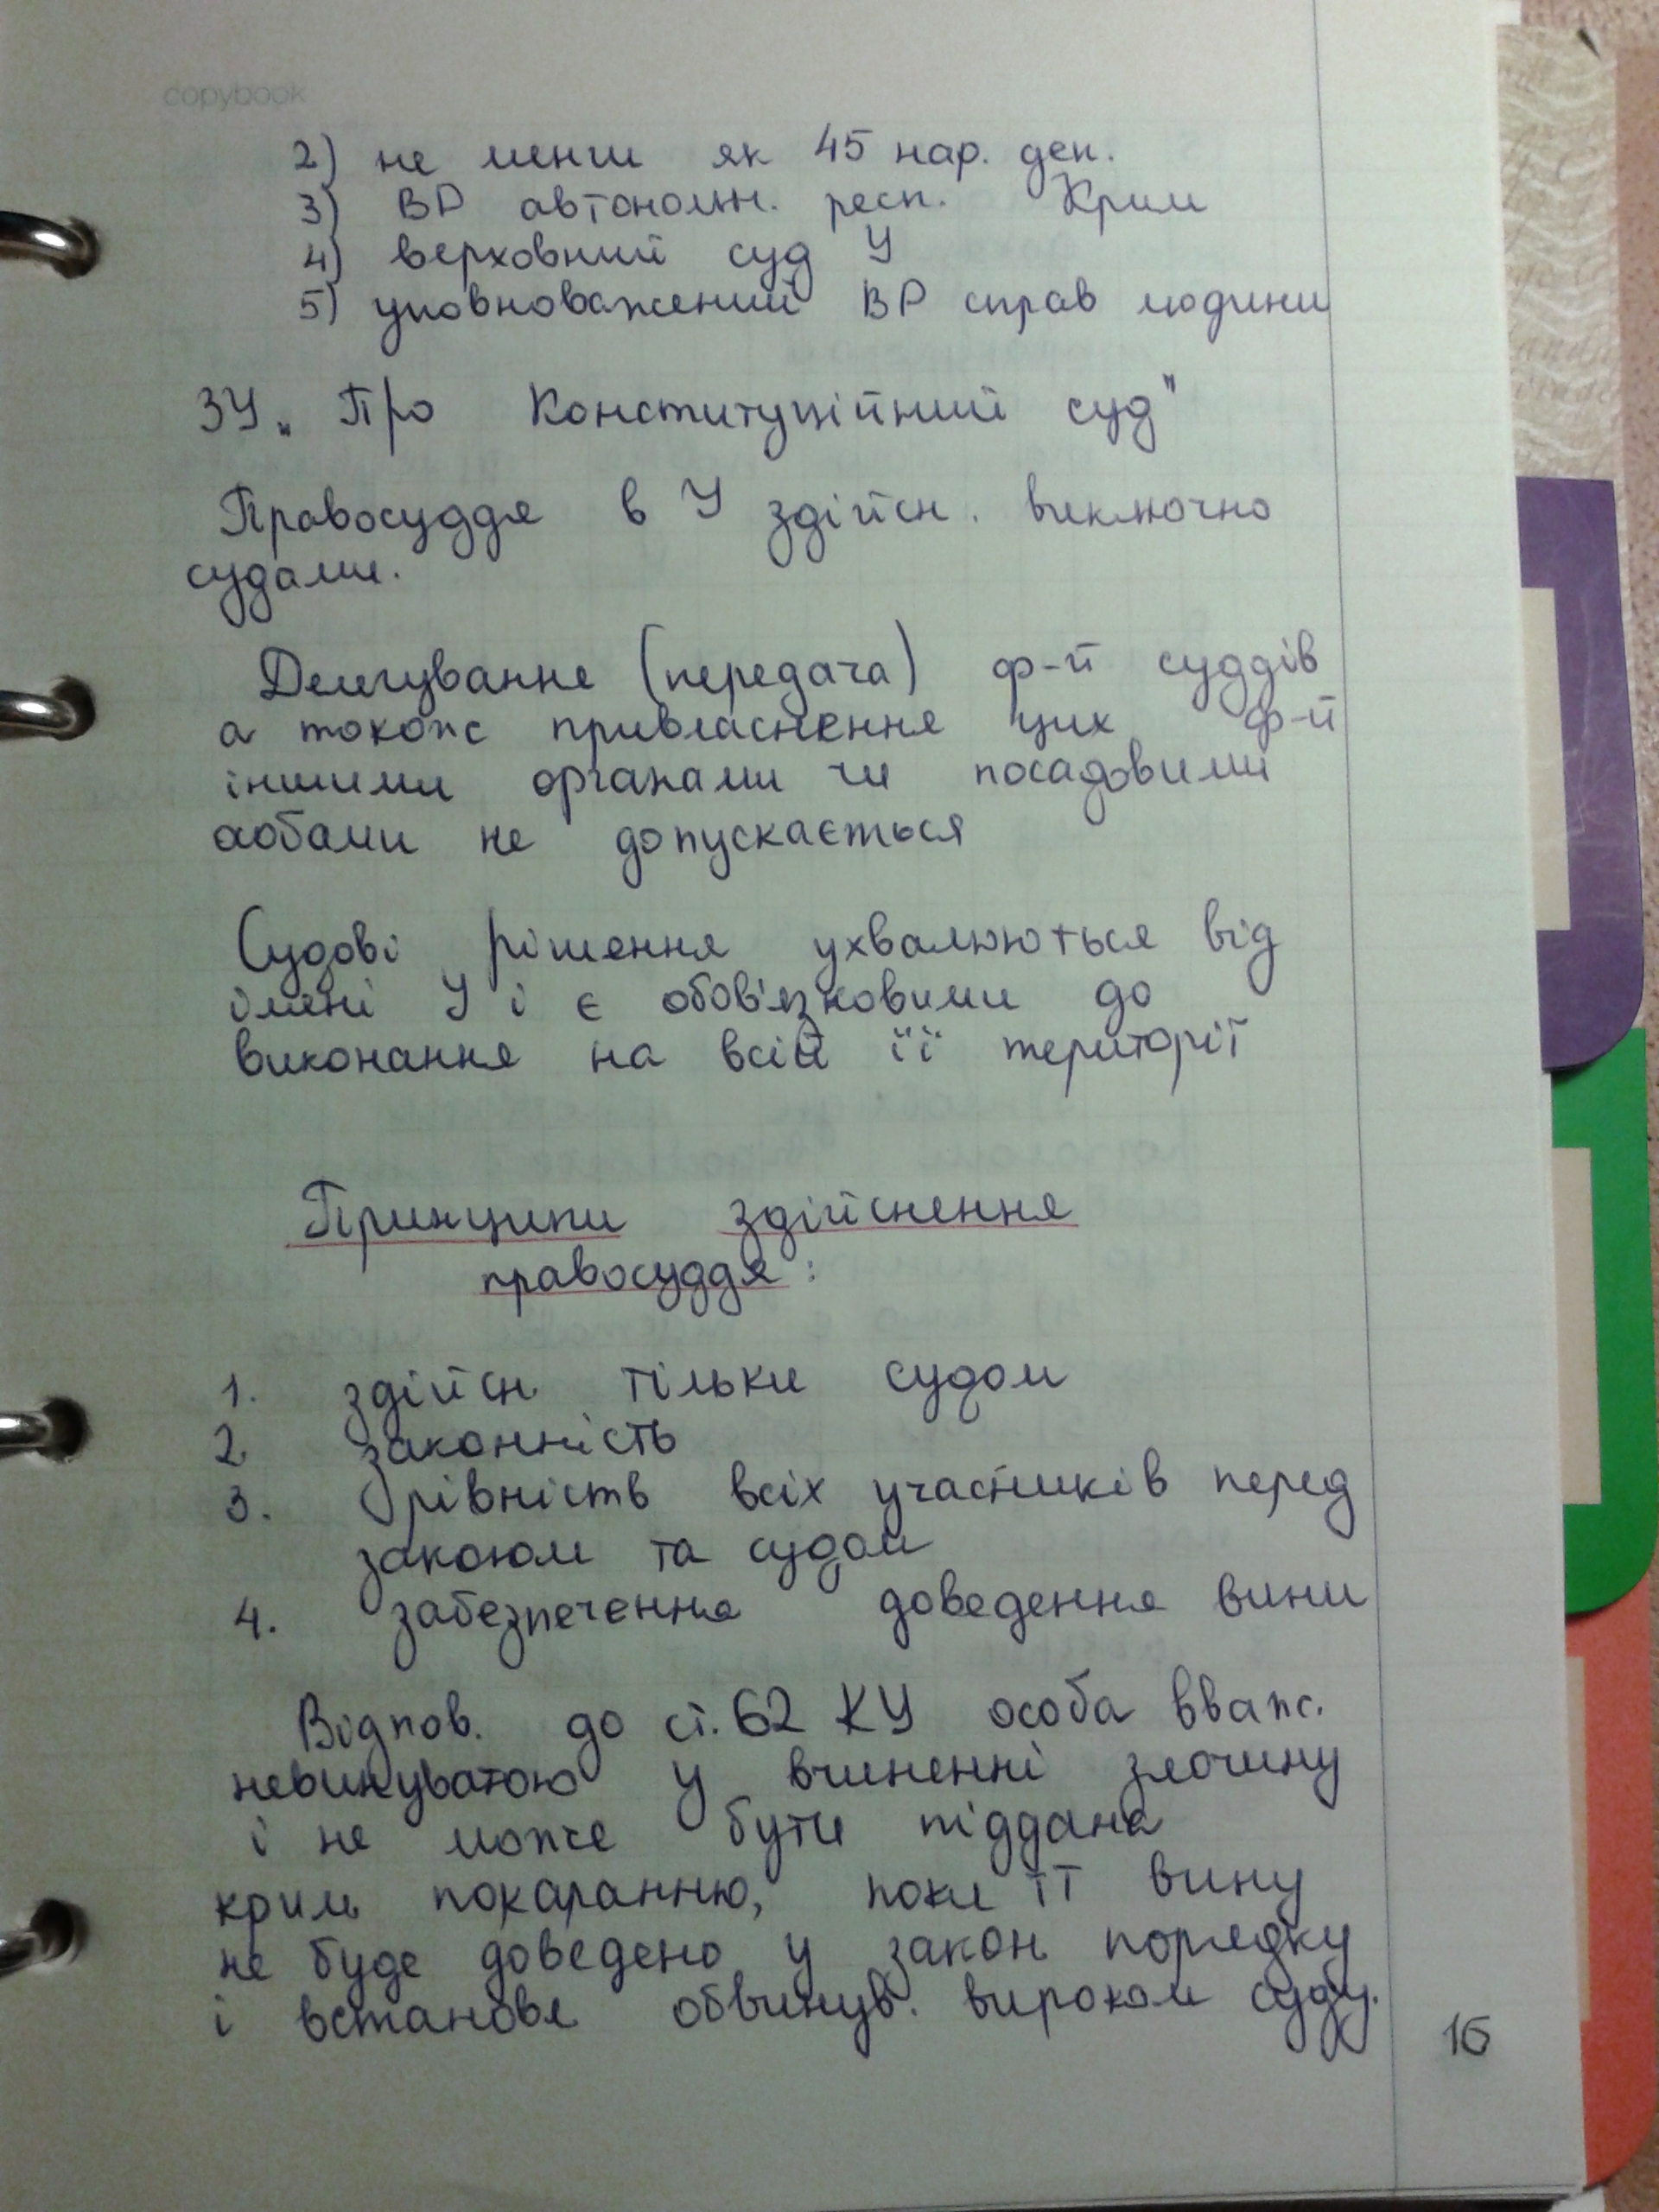 copybook
2) не менш як 45 нар. деп.
3) ВР автономн. респ. Крим
4) верховний суд У
5) уповноважений ВР справ людини
ЗУ „Про Конституційний суд"
Правосуддя в У здійсн. виключно
судами.
Делегування (передача) ф-й суддів
а також привласнення цих ф-й
іншими органами чи посадовими
особами не допускається
Судові рішення ухвалюються від
імені У і є обов'язковими до
виконання на всій її території
Принципи здійснення
правосуддя:
1. здійсн тільки судом
2 законність
3. рівність всіх учасників перед
законом та судом
4. забезпечення доведення вини
Відпов. до ст. 62 КУ особа вваж.
невинуватою у вчиненні злочину
і не може бути піддана
крим покаранню, поки її вину
не буде доведено у закон порядку
і встановл обвинув. вироком суду.
16